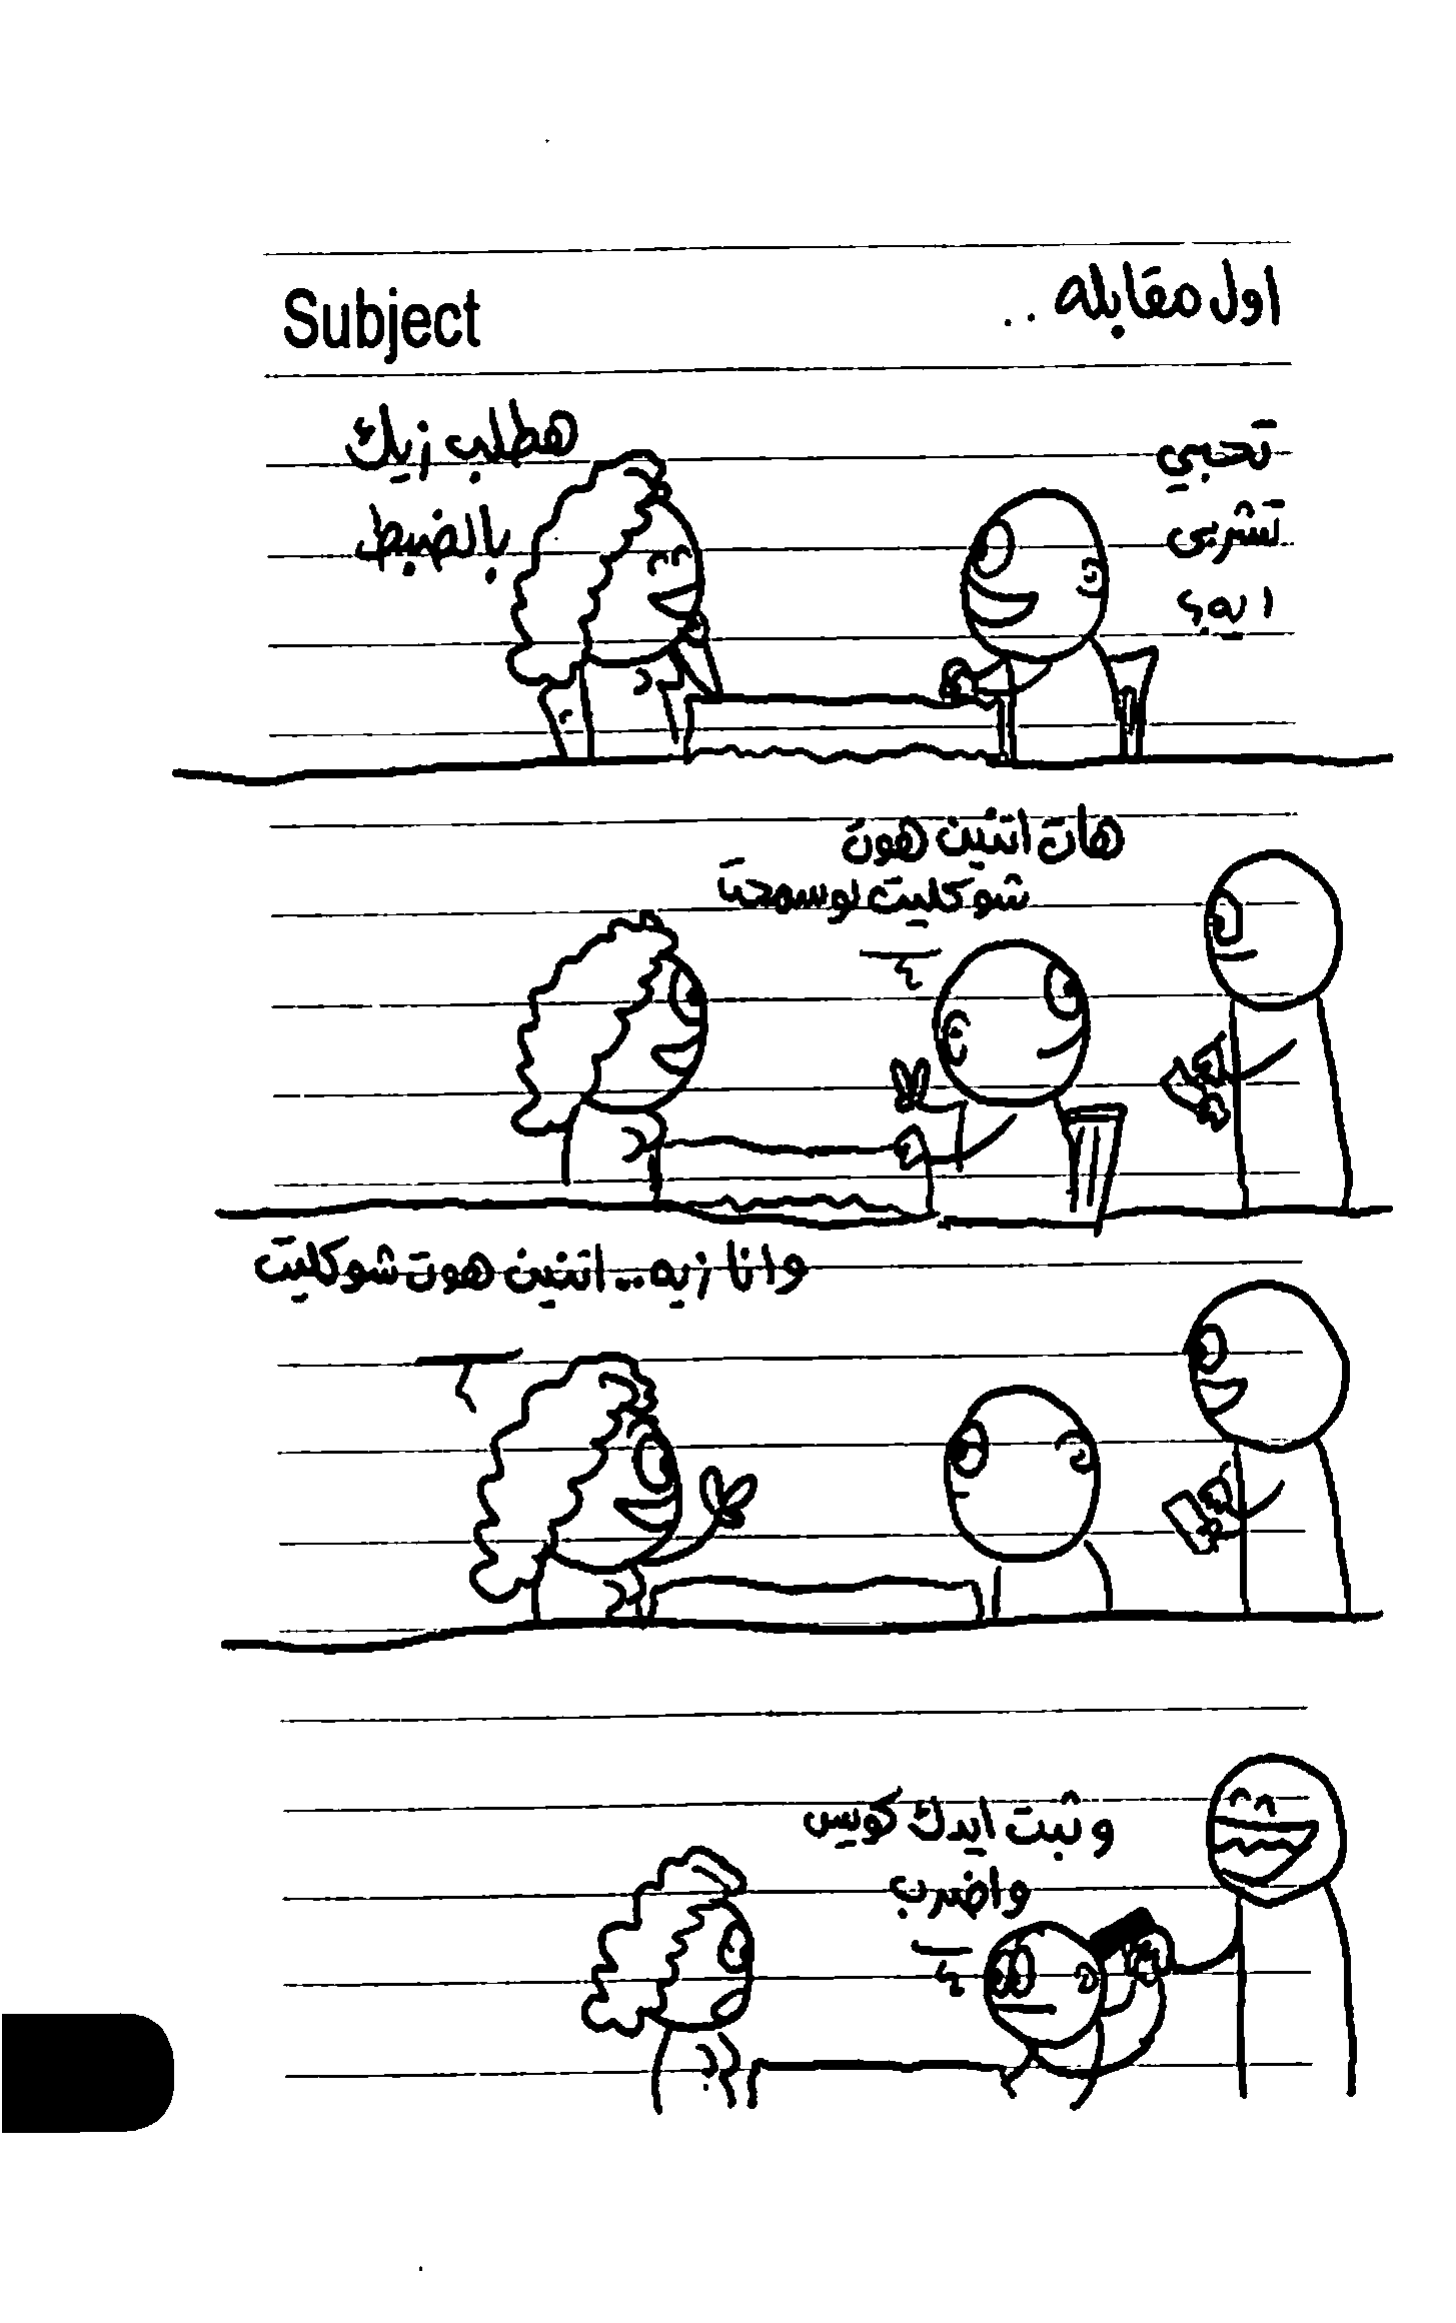 Subject
اول مقابله ..
تحبي
تشربي
ايه؟
هطلب زيك
بالضبط
هات اتنين هوت
شوكليت لو سمحت
وانا زيه .. اتنين هوت شوكليت
و ثبت ايدك كويس
واضرب